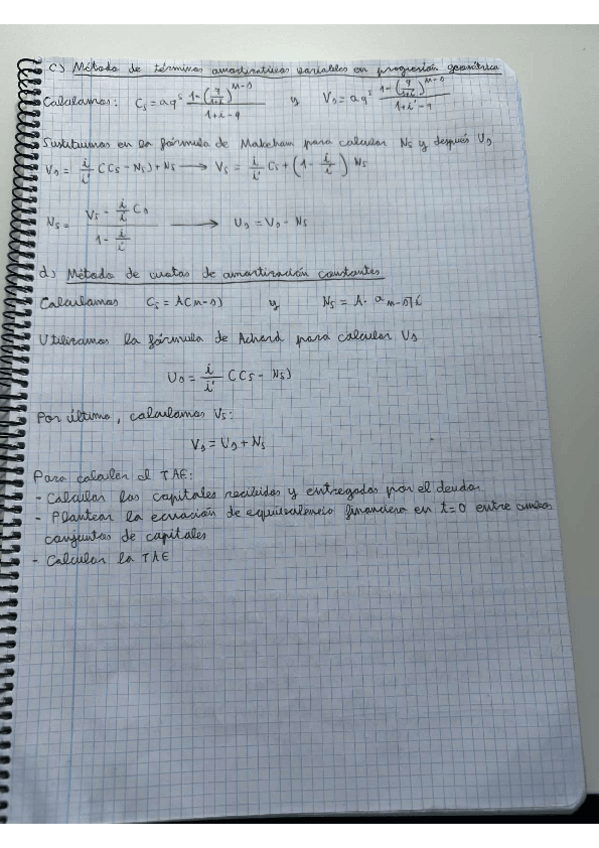 c) Método de términos amortizativos variables en progresión geométrica
Calculamos: Cs = aq^s (1-(q/(1+i))^(n-s))/(1+i-q) y Vs = aq^s (1-(q/(1+i'))^(n-s))/(1+i'-q)
Sustituimos en la fórmula de Makeham para calcular Ns y después Us
Vs = i/i' (Cs - Ns) + Ns → Vs = i/i' Cs + (1 - i/i') Ns
Ns = (Vs - i/i' Cs)/(1 - i/i') → Us = Vs - Ns
d) Método de cuotas de amortización constantes
Calculamos Cs = A(n-s) y Ns = A · a n-s|i'
Utilizamos la fórmula de Achard para calcular Us
Us = i/i' (Cs - Ns)
Por último, calculamos Vs:
Vs = Us + Ns
Para calcular el TAE:
- Calcular los capitales recibidos y entregados por el deudor
- Plantear la ecuación de equivalencia financiera en t=0 entre ambos
conjuntos de capitales
- Calcular la TAE